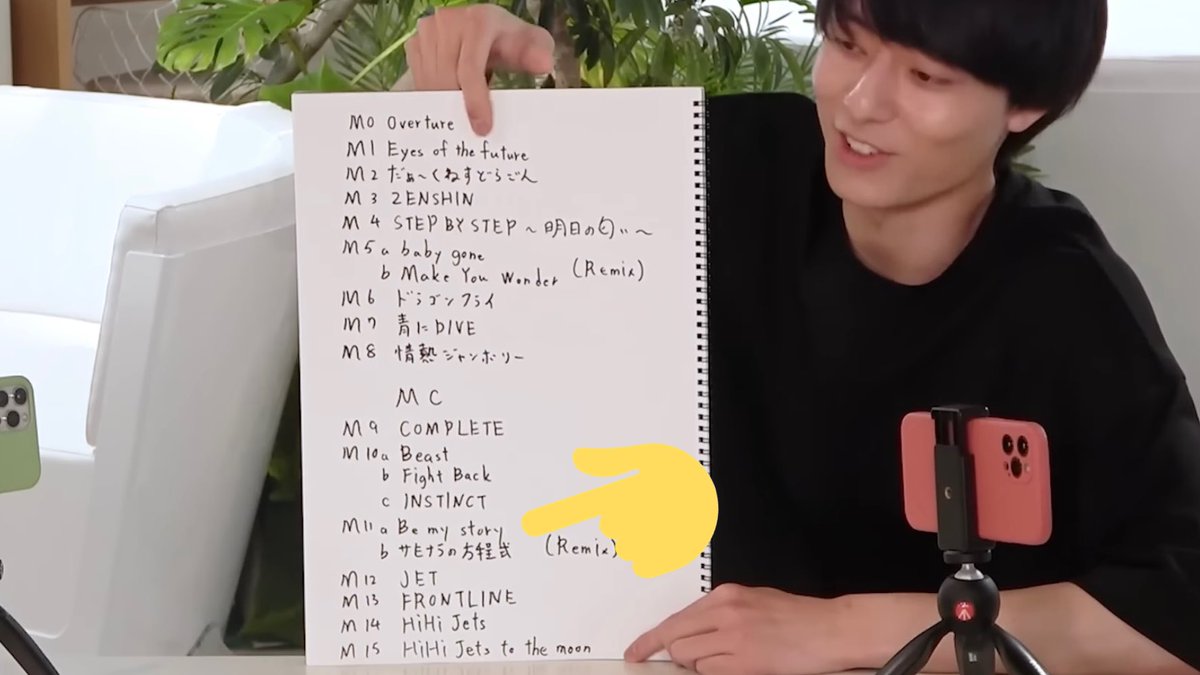 M0 Overture
M1 Eyes of the future
M2 だぁ〜くねすどらごん
M3 ZENSHIN
M4 STEP BY STEP〜明日の匂い〜
M5 a baby gone
b Make You Wonder (Remix)
M6 ドラゴンフライ
M7 青にDIVE
M8 情熱ジャンボリー
MC
M9 COMPLETE
M10a Beast
b Fight Back
c INSTINCT
M11 a Be my story
b サヨナラの方程式 (Remix)
M12 JET
M13 FRONTLINE
M14 HiHi Jets
M15 HiHi Jets to the moon